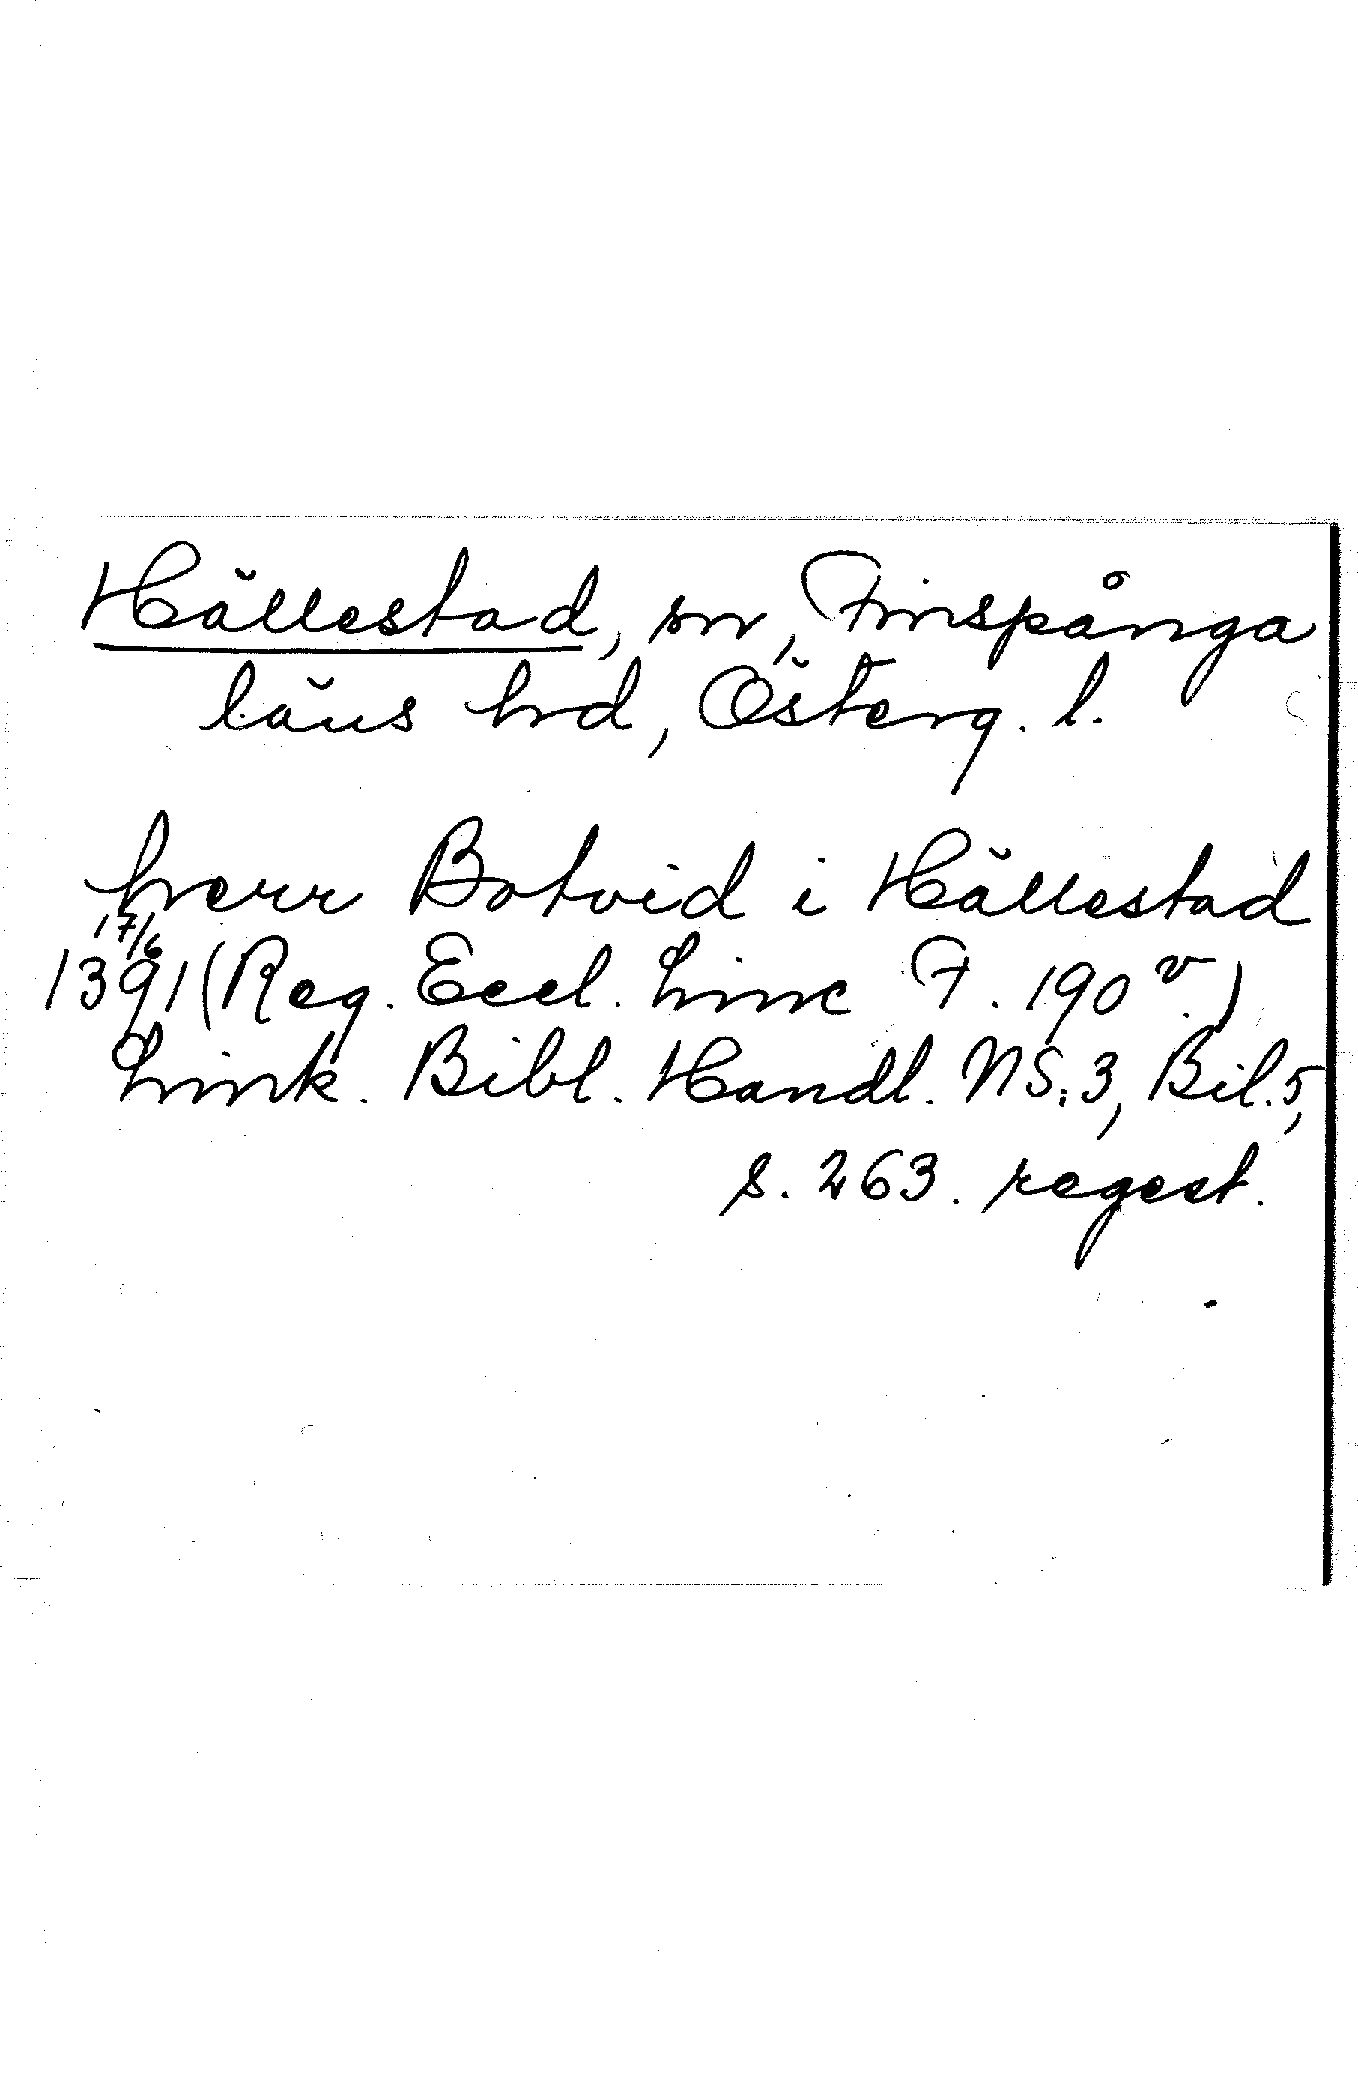 Hällestad, sn, Finspånga
läns hrd, Österg. l.
herr Botvid i Hällestad
17/6
1391 (Reg. Eccl. Linc F. 190 v.)
Link. Bibl. Handl. NS:3, Bil.5,
s. 263. regest.